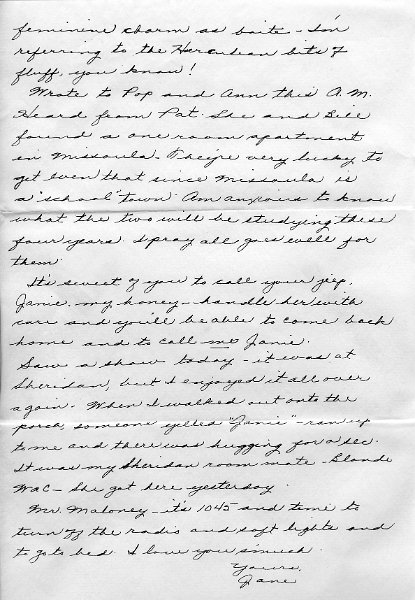 feminine charm as bait - I'm
referring to the Herculean bits of
fluff, you know!
Wrote to Pop and Ann this A.M.
Heard from Pat. She and Bill
found a one room apartment
in Missoula. They're very lucky to
get even that since Missoula is
a "school" town. Am anxious to know
what the two will be studying these
four years. I pray all goes well for
them.
It's sweet of you to call your jeep,
Janie, my honey - handle her with
care and you'll be able to come back
home and to call me Janie.
Saw a show today - it was at
Sheridan, but I enjoyed it all over
again. When I walked out onto the
porch, someone yelled "Janie" - ran up
to me and there was hugging for a sec.
It was my Sheridan room mate - Blonde
Wac - She got here yesterday.
Mr. Maloney - it's 1045 and time to
turn off the radio and soft lights and
to go to bed. I love you so much.
Yours,
Jane